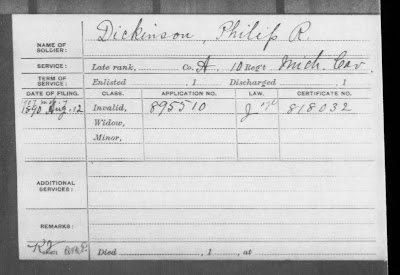 NAME OF SOLDIER: Dickinson, Philip R.
SERVICE: Late rank, Co. A, 10 Reg't Mich. Cav.
TERM OF SERVICE: Enlisted , 1 Discharged , 1
DATE OF FILING. CLASS. APPLICATION NO. LAW. CERTIFICATE NO.
1890 Aug. 12 Invalid, 895510 J 818032
Widow,
Minor,
ADDITIONAL SERVICES:
REMARKS:
Died , 1 , at